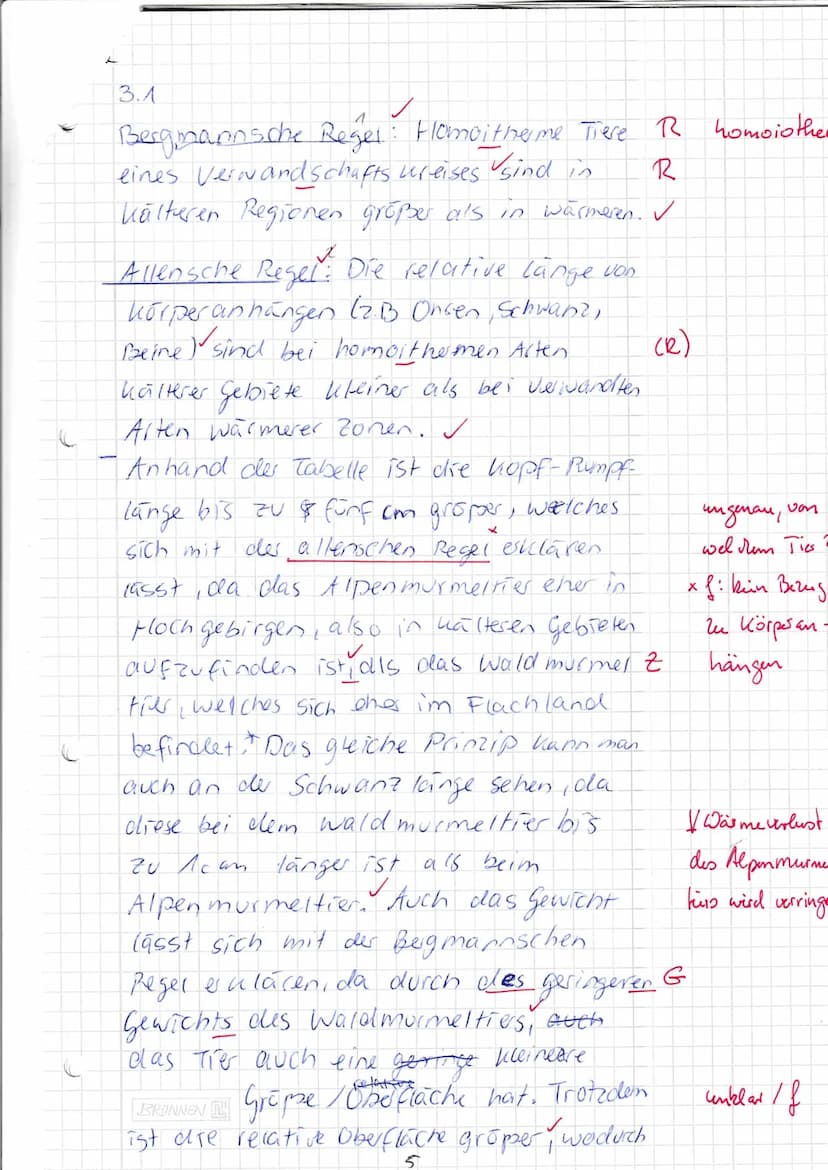 3.1
Bergmannsche Regel: Homoitherme Tiere R homoiothe
eines Verwandschaftskreises sind in R
kälteren Regionen größer als in wärmeren. ✓
Allensche Regel: Die relative länge von
Körperanhängen (z.B Ohren, Schwanz,
Beine) sind bei homoithermen Arten (R)
kälterer Gebiete kleiner als bei verwandten
Arten wärmerer Zonen. ✓
Anhand der Tabelle ist die Kopf-Rumpf-
länge bis zu fünf cm größer, welches ungenau, von
sich mit der allenschen Regel erklären welchem Tier?
lässt, da das Alpenmurmeltier eher in x f: kein Bezug
Hochgebirgen, also in kälteren Gebieten zu Körperan-
aufzufinden ist, als das Waldmurmel Z hängen
tier, welches sich eher im Flachland
befindet.* Das gleiche Prinzip kann man
auch an der Schwanzlänge sehen, da
diese bei dem Waldmurmeltier bis ↓ Wärmeverlust
zu 1cm länger ist als beim des Alpenmurme
Alpenmurmeltier. Auch das Gewicht tiers wird verringe
lässt sich mit der Bergmannschen
Regel erklären, da durch des geringeren G
Gewichts des Waldmurmeltiers, auch
das Tier auch eine geringe kleinere
relative
BRUNNEN Größe/Oberfläche hat. Trotzdem unklar / f
ist die relative Oberfläche größer, wodurch
5